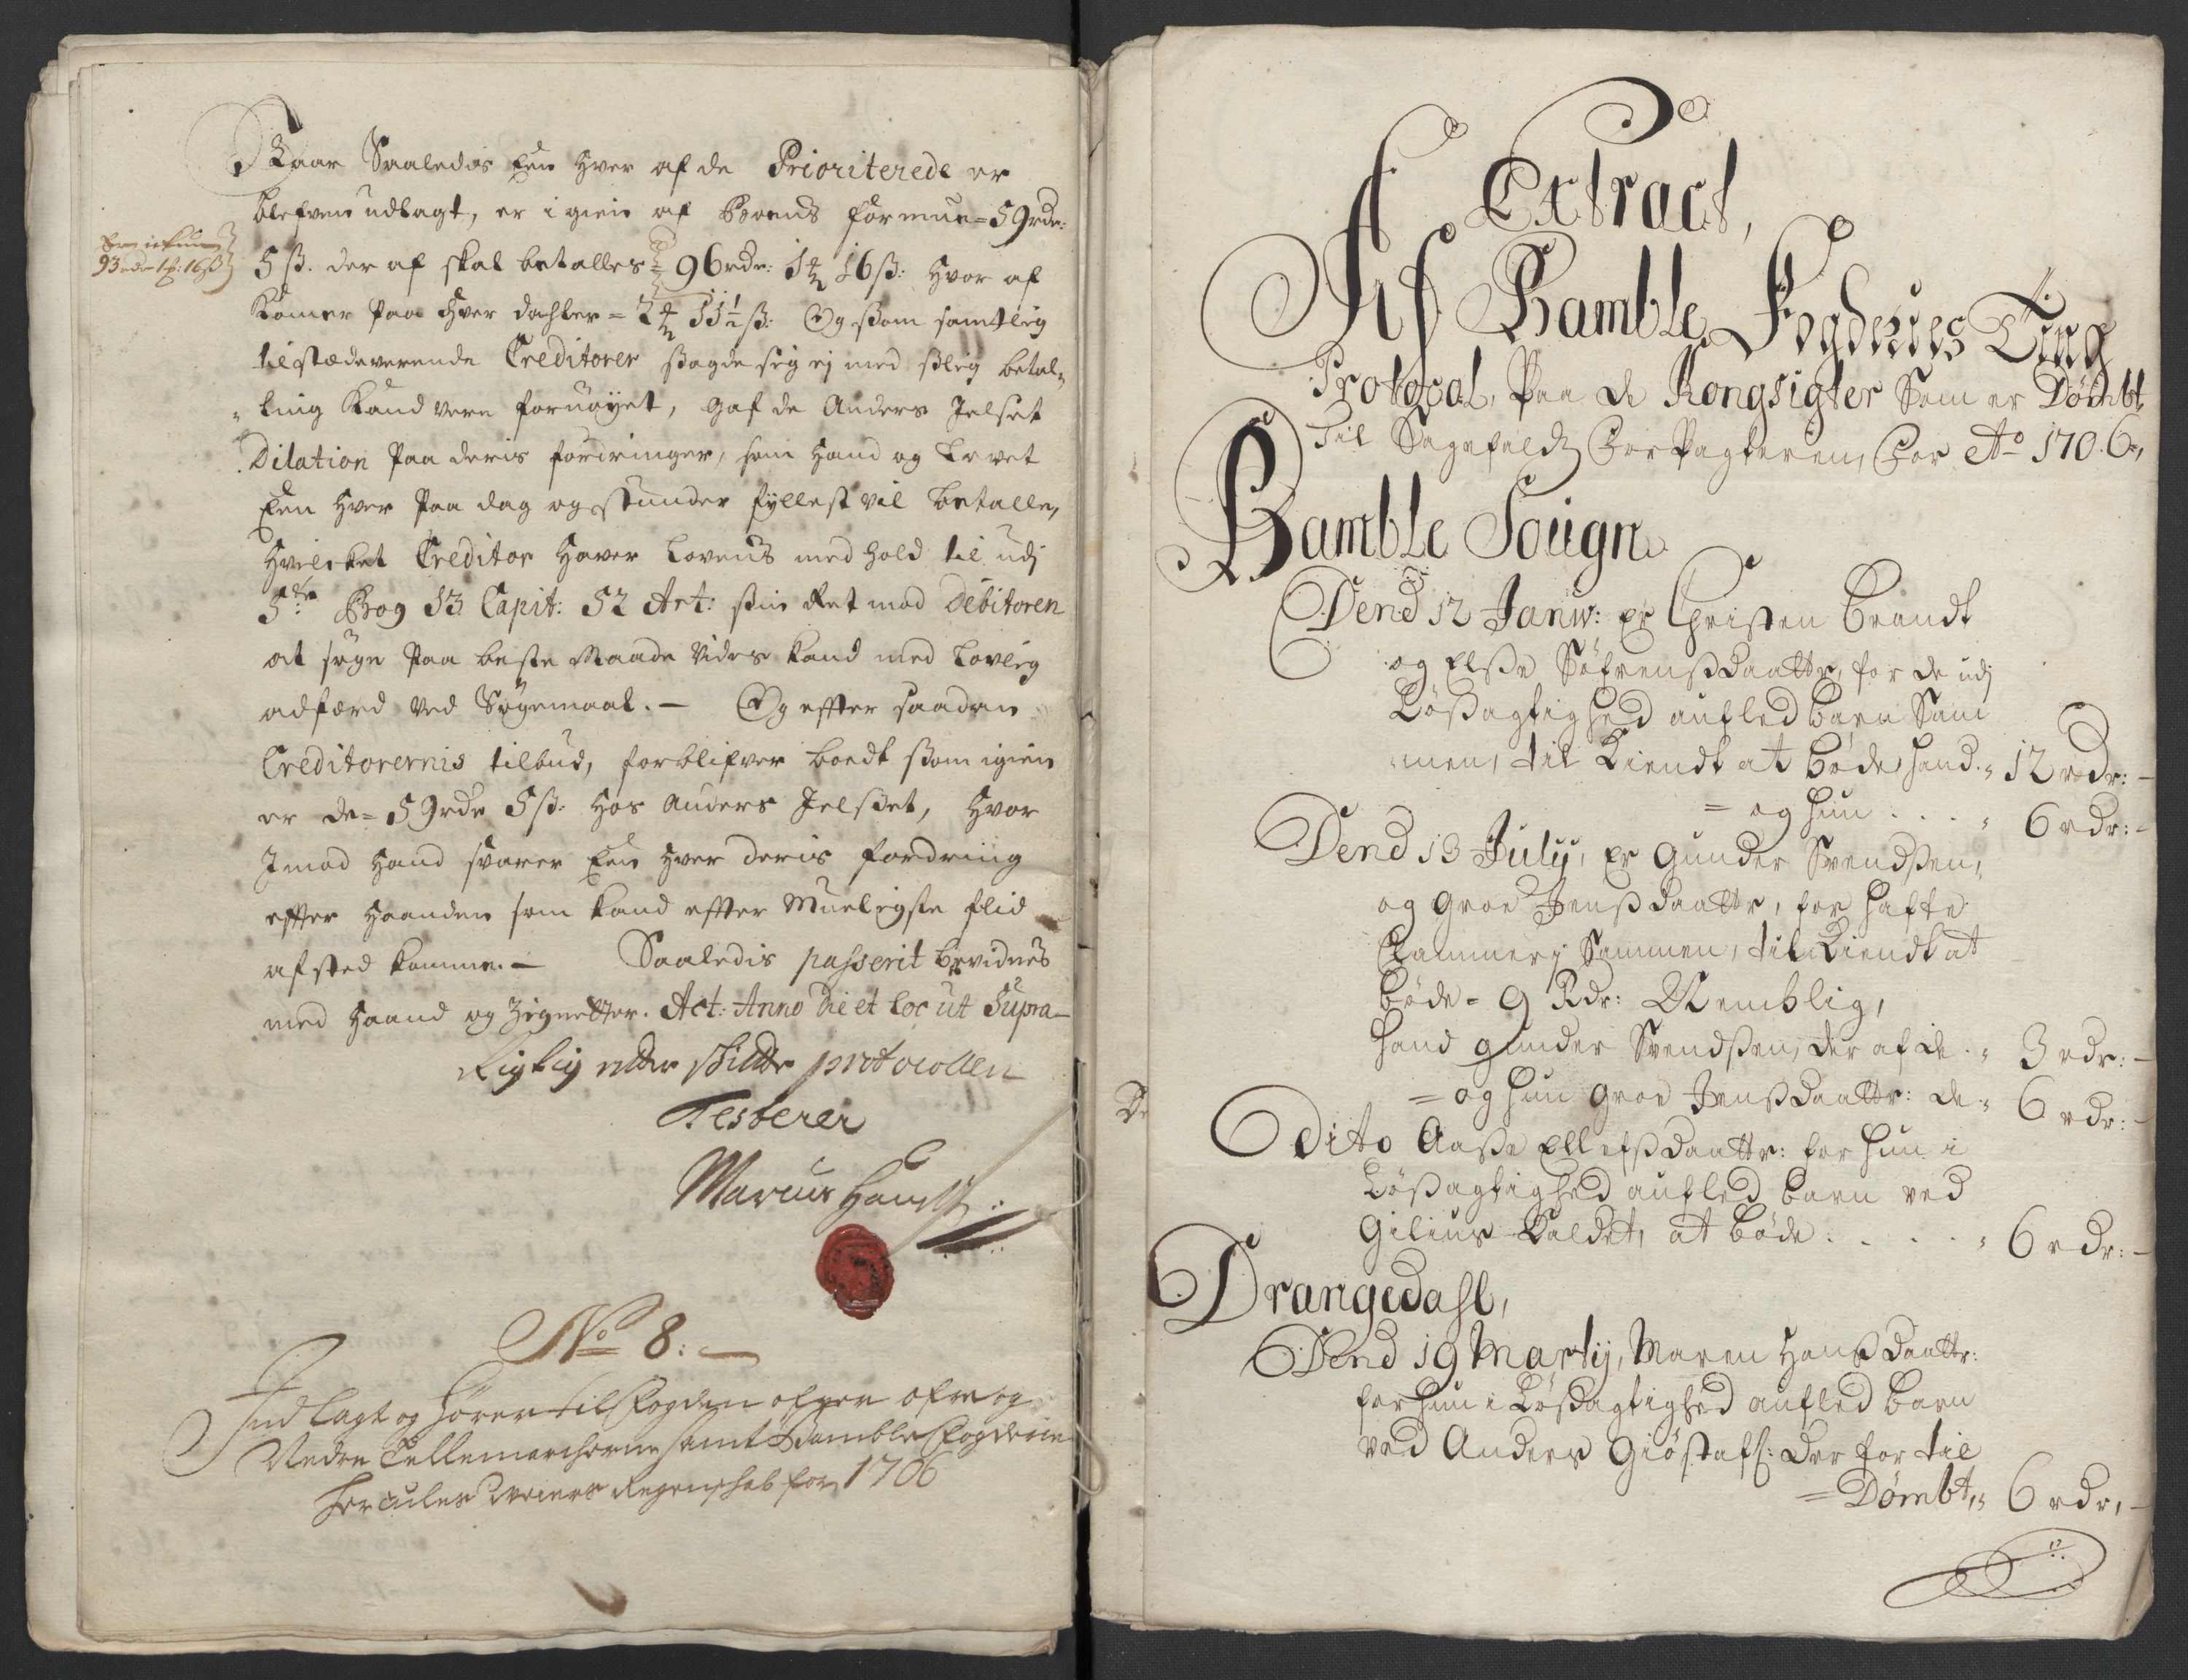 Naar Saaledis Een hver af de Prioriterede er
blefven udlagt, er igien af Boens formue = 59 rdr:
5 ß. der af skal betalles = 96 rdr: 1 ort 16 ß: hvor af
93 rdr 1 ort: 16 ß
Kommer paa hver dahler = 2 ort 11½ ß: Og ßom samtlig
tilstædeverende Creditorer ßagde sig ej med ßlig betal-
ling kand vere fornøyet, gaf de Anders Jelset
Dilation paa deris fordringer, som hand og lovet
Een hver paa dag og stunder fyllest vil betalle,
hvilcket Creditor haver lovens medhold til udj
5te Bog 13 Capit: 52 Art: sin Ret mod Debitoren
at søge paa beste Maade vides kand med lovlig
adfærd ved Søgemaal. — Og effter saadan
Creditorernis tilbud, forblifver boedt ßom igien
er de = 59 rdr 5 ß. hos Anders Jelßet, hvor
Imod hand svarer Een hver deris fordring
effter haanden som kand effter Mueligste flid
afsted komme. — Saaledis passerit bevidnes
med haand og Zigneter. Act: Anno die et loc ut Supra —
Rigtig efter skifte protocollen
Testerer
Marcus Hans
No 8: —
Indlagt og hører til Fogden ofver øfre og
Nedre Tellemarchen samt Bamble Fogderie
Hercules Weiers Regenskab for 1706
Extract,
Af Bamble Fogderies Ting
Protocol, paa de Kongsigter Som er Dømbt
Til Sagefalds Forpagteren, For Ao 1706,
Bamble Sougn
Dend 12 Janu: er Christen Brandt
og Elße Søfrenßdaatter, for de udj
Løßagtighed aufled barn Sam
men, til kiendt at bøde, hand " 12 rdr: —
= og hun . . . " 6 rdr: —
Dend 13 July, er Gunder Svendßen,
og Groe Jenßdaatter, for hafte
Clammerj Sammen, til kiendt at
bøde = 9 Rdr: Nemblig,
hand Gunder Svendßen, der af de . " 3 rdr: —
= og hun Groe Jenßdaatter: de " 6 rdr: —
Dito Aaße Ellefßdaatter: for hun i
Løßagtighed aufled barn ved
Gilius Kaldet, at bøde . . . . " 6 rdr: —
Drangedahl,
Dend 19 Martij, Maren Hanßdaatter:
for hun i Løßagtighed aufled barn
ved Anders Giøstafs: der for til
= Dømbt, " 6 rdr, —